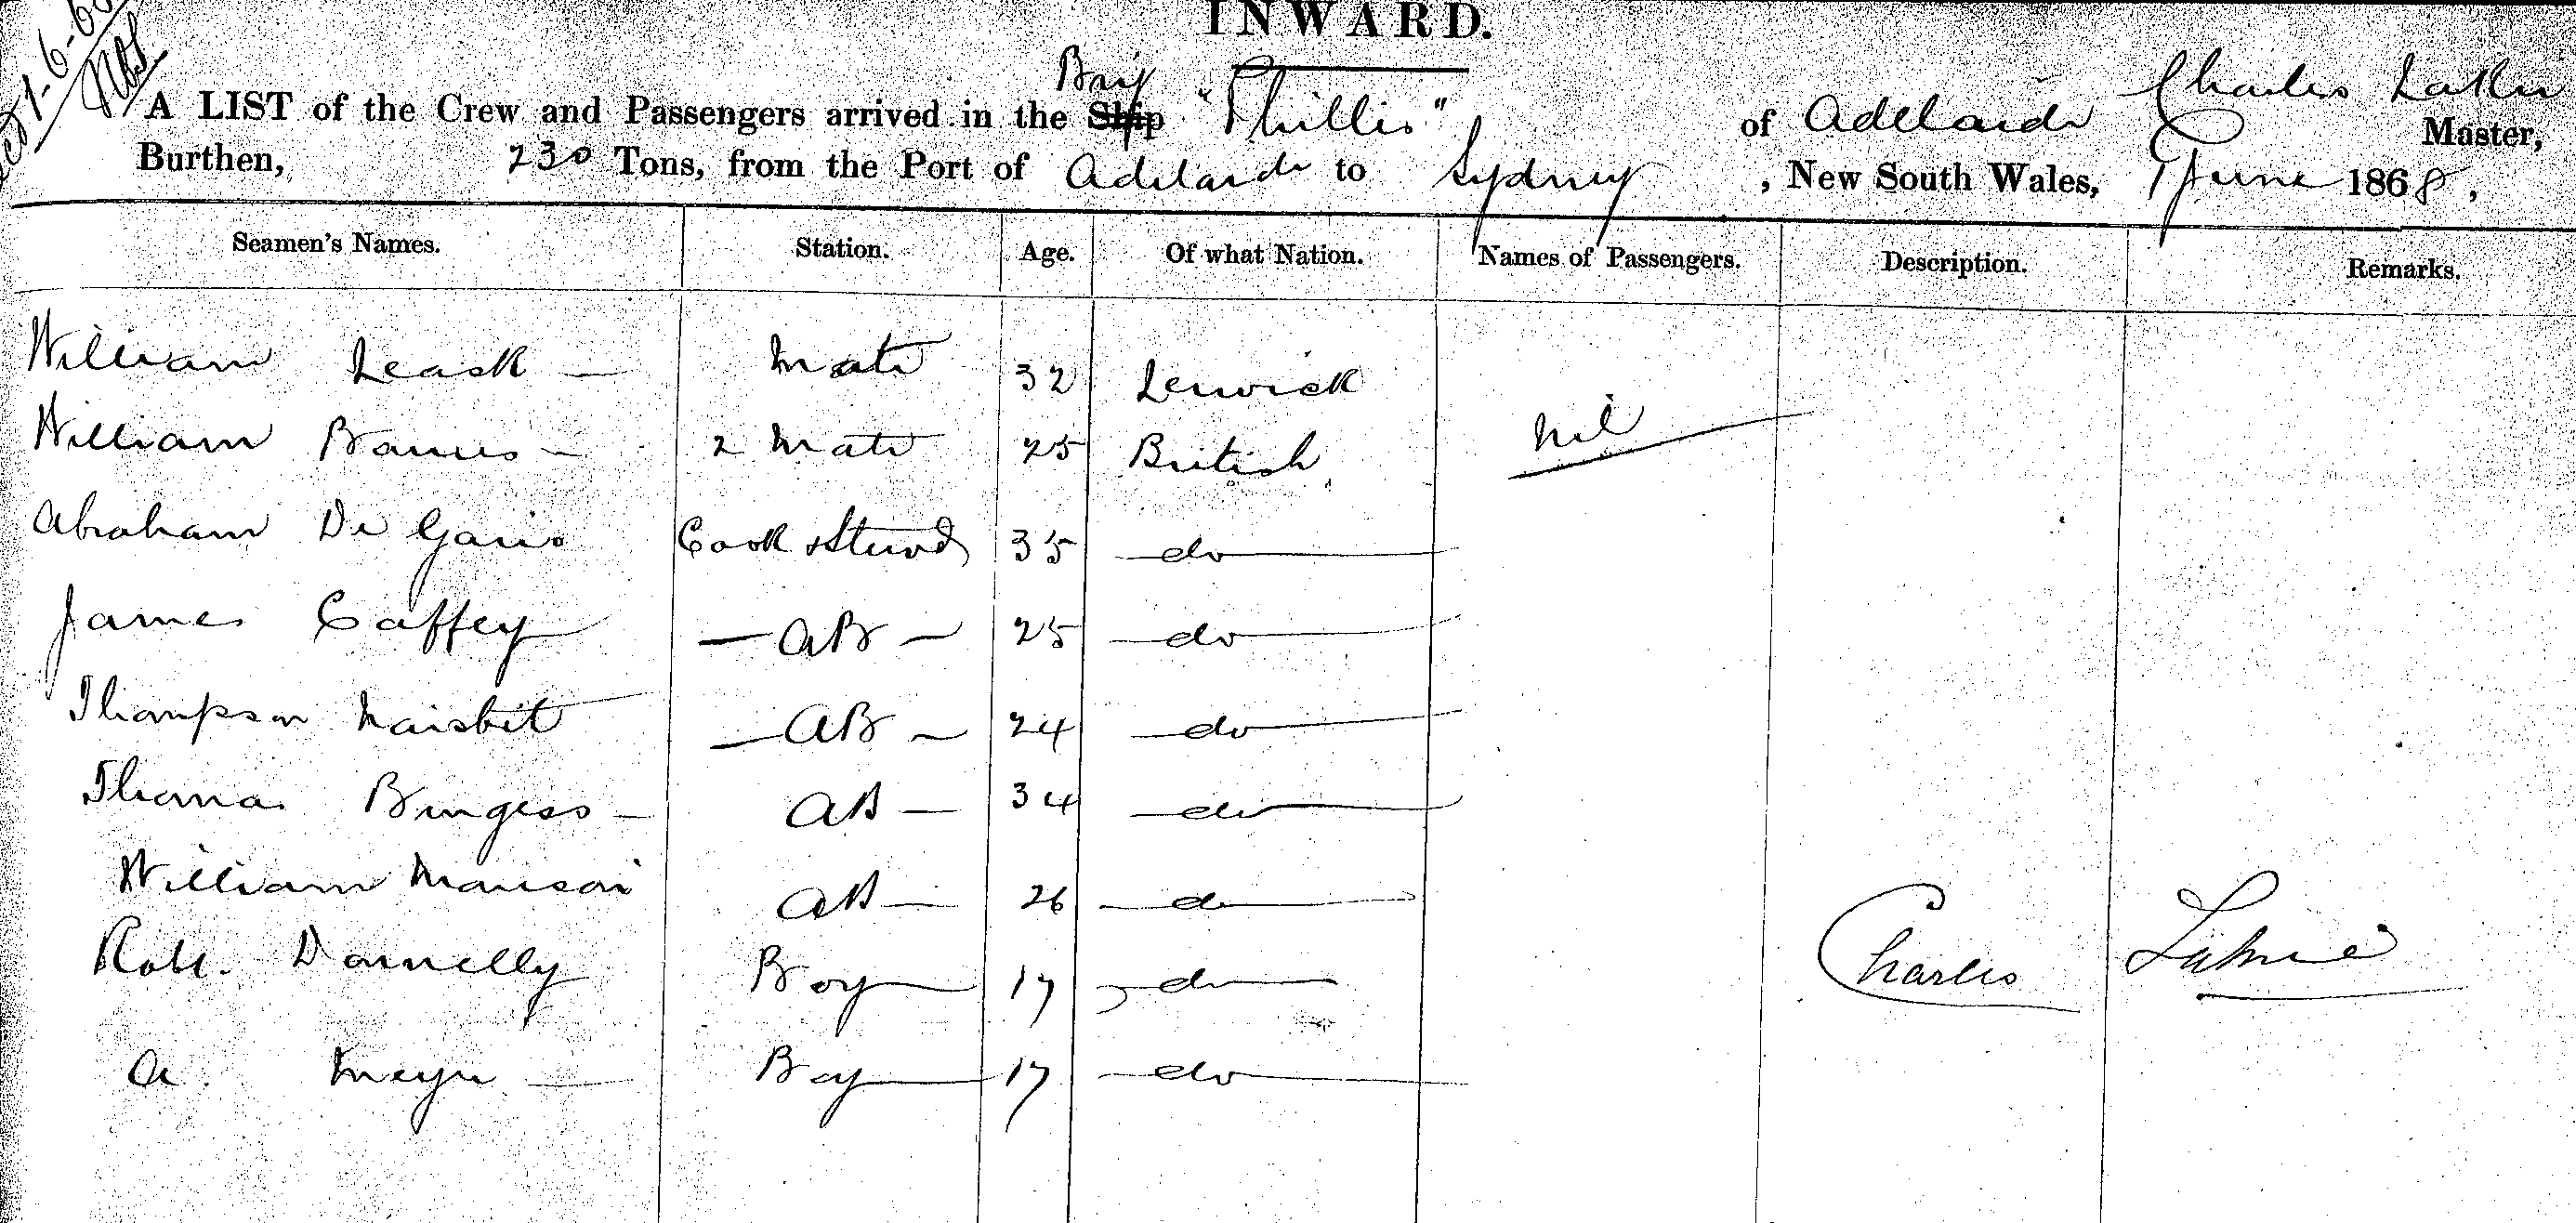 INWARD.
A LIST of the Crew and Passengers arrived in the Ship Brig "Phillis" of Adelaide Charles Master,
Burthen, 230 Tons, from the Port of Adelaide to Sydney, New South Wales, June 1868,
Seamen's Names. Station. Age. Of what Nation. Names of Passengers. Description. Remarks.
William Leask — Mate 32 Lerwick
William Barnes — 2 Mate 25 British nil
Abraham De Garis Cook & Stewd 35 do
James Caffey — AB — 25 do
Thompson Naisbit — AB — 24 do
Thomas Burgess — AB — 34 do
William Manson AB — 26 do
Robt. Donnelly Boy 17 do
Charles
A Meyer — Boy 17 do